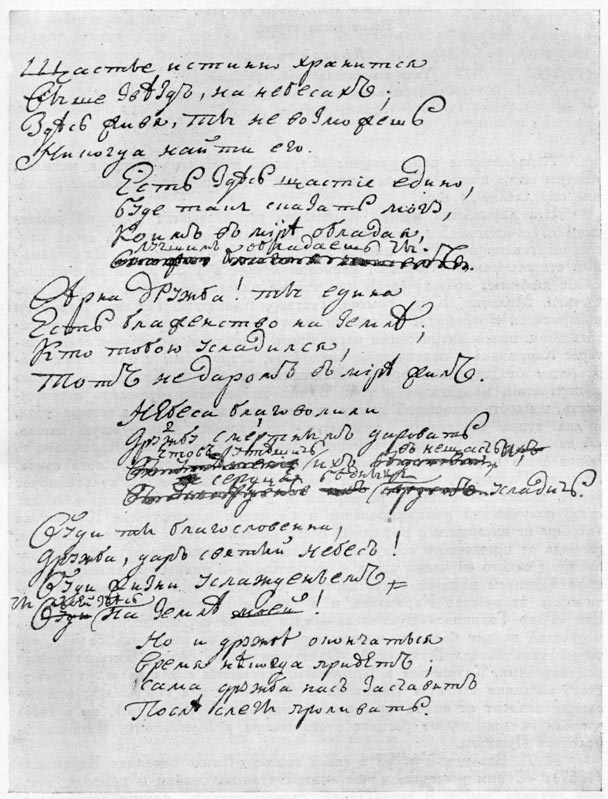 Щастье истинно хранится
Выше звѣздъ, на небесахъ;
Здѣсь живя, ты не возможешь
Никогда найти его.
Есть здѣсь щастіе едино,
Буде такъ сказать могу,
Коимъ въ мірѣ обладая,
Лучшимъ обладаешь ты.
Вѣрна дружба! ты едина
Есть блаженство на землѣ;
Кто тобою усладился,
Тотъ недаромъ въ мірѣ жилъ.
Небеса благоволили
Дружбу смертнымъ даровать
Чтобъ утѣшить ихъ въ нещастьи,
сердце бѣдныхъ усладить.
Буди ты благословенна,
Дружба, даръ святый небесъ!
Буди жизни услажденьемъ
ты моей здѣсь
на землѣ!
Но и дружбѣ окончаться
Время нѣкогда придетъ;
Сама дружба насъ заставитъ
Послѣ слезы проливать.